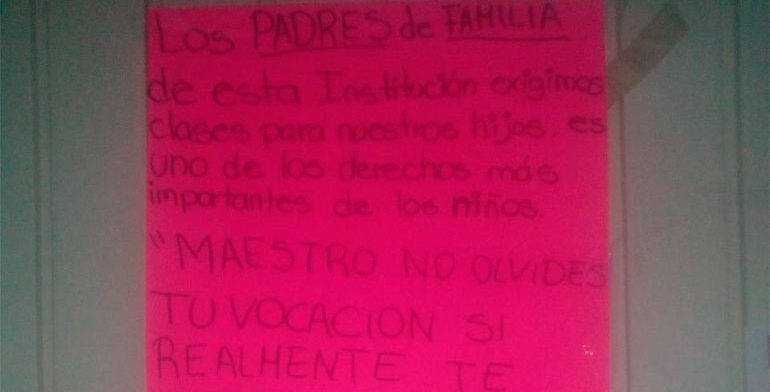 Los PADRES de FAMILIA
de esta Institución exigimos
clases para nuestros hijos. es
uno de los derechos más
importantes de los niños
"MAESTRO NO OLVIDES
TU VOCACION SI
REALMENTE TE